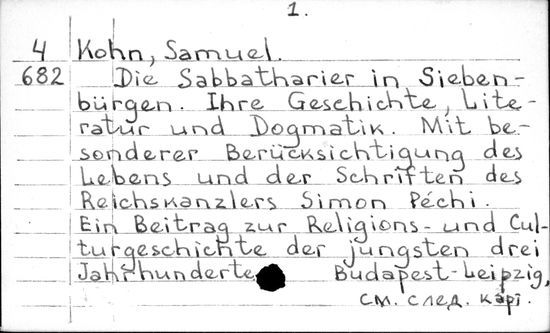 1.
4 Kohn, Samuel.
682 Die Sabbatharier in Sieben-
bürgen. Ihre Geschichte, Lite-
ratur und Dogmatik. Mit be-
sonderer Berücksichtigung des
Lebens und der Schriften des
Reichskanzlers Simon Péchi.
Ein Beitrag zur Religions- und Cul-
turgeschichte der jüngsten drei
Jahrhunderte Budapest-Leipzig,
см. след. карт.